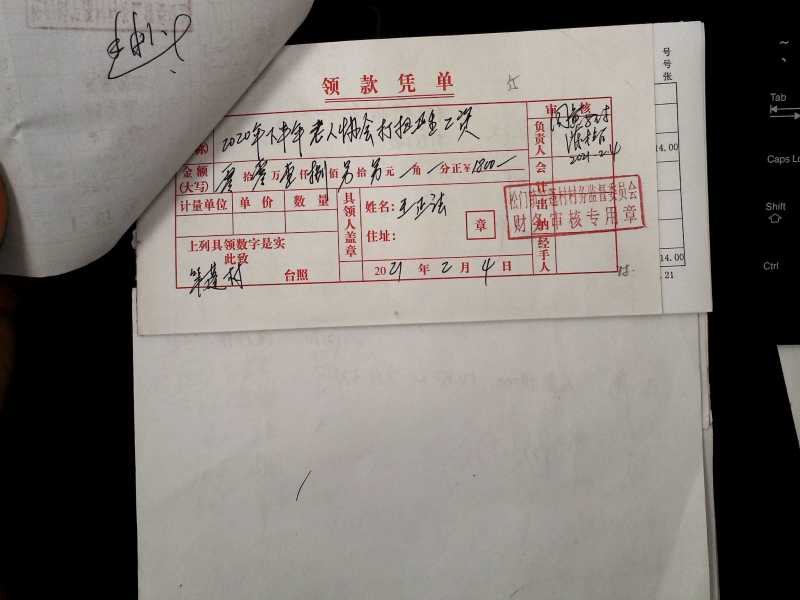 领款凭单
审核
2020年下半年老人协会打扫卫生工资
金额
(大写)
零拾零万壹仟捌佰另拾另元一角一分正¥1800一
负责人
2021-2-4
计量单位 单价 数量
具领人盖章
姓名:王正法
住址:
章
会计
出纳
经手人
松门镇 村村务监督委员会
财务审核专用章
上列具领数字是实
此致
村 台照
2021年2月4日
号
号
张
14.00
14.00
.21
~
Tab
Caps Lo
Shift
Ctrl